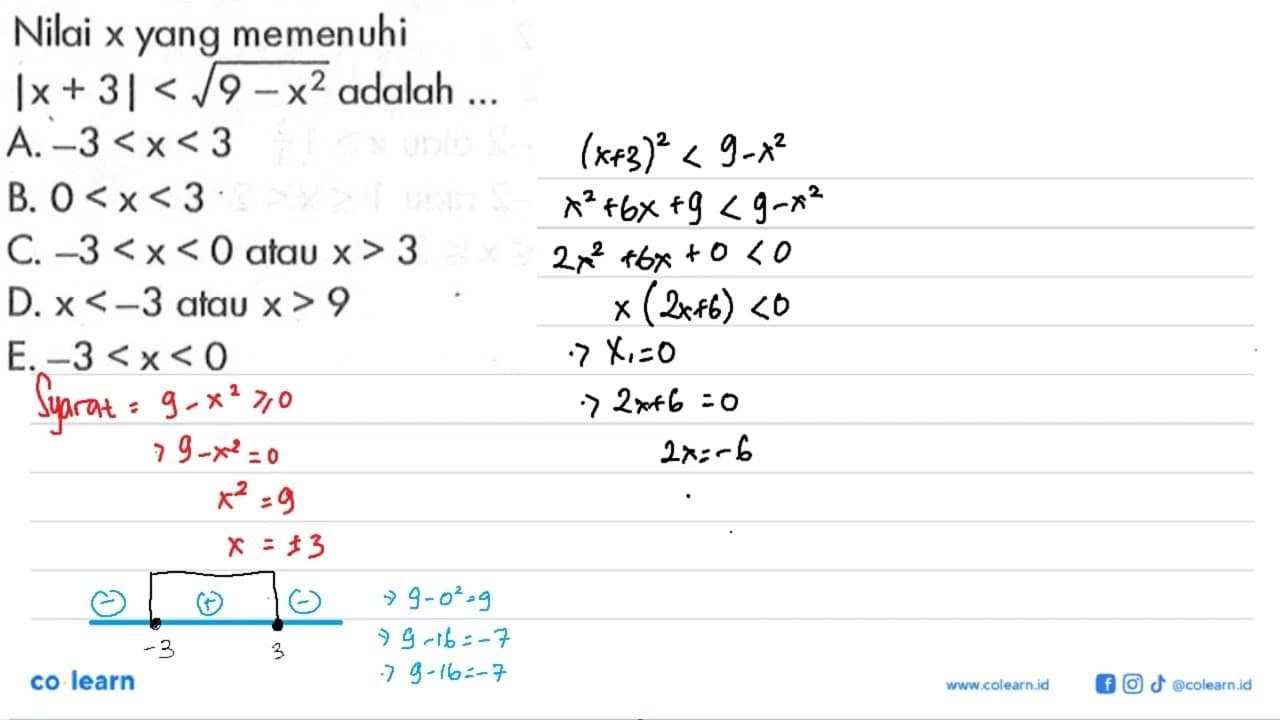 Nilai x yang memenuhi
|x + 3| < √(9 − x²) adalah ...
A. −3 < x < 3
B. 0 < x < 3
C. −3 < x < 0 atau x > 3
D. x < −3 atau x > 9
E. −3 < x < 0
Syarat = 9 - x² ≥ 0
→ 9 - x² = 0
x² = 9
x = ±3
(−) (+) (−)
-3 3
→ 9 - 0² = 9
→ 9 - 16 = -7
→ 9 - 16 = -7
(x+3)² < 9 - x²
x² + 6x + 9 < 9 - x²
2x² + 6x + 0 < 0
x (2x+6) < 0
→ x₁ = 0
→ 2x+6 = 0
2x = -6
co learn
www.colearn.id
@colearn.id